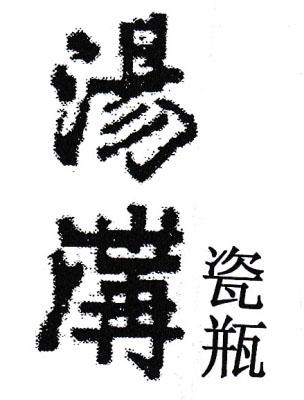 湯溝
瓷瓶